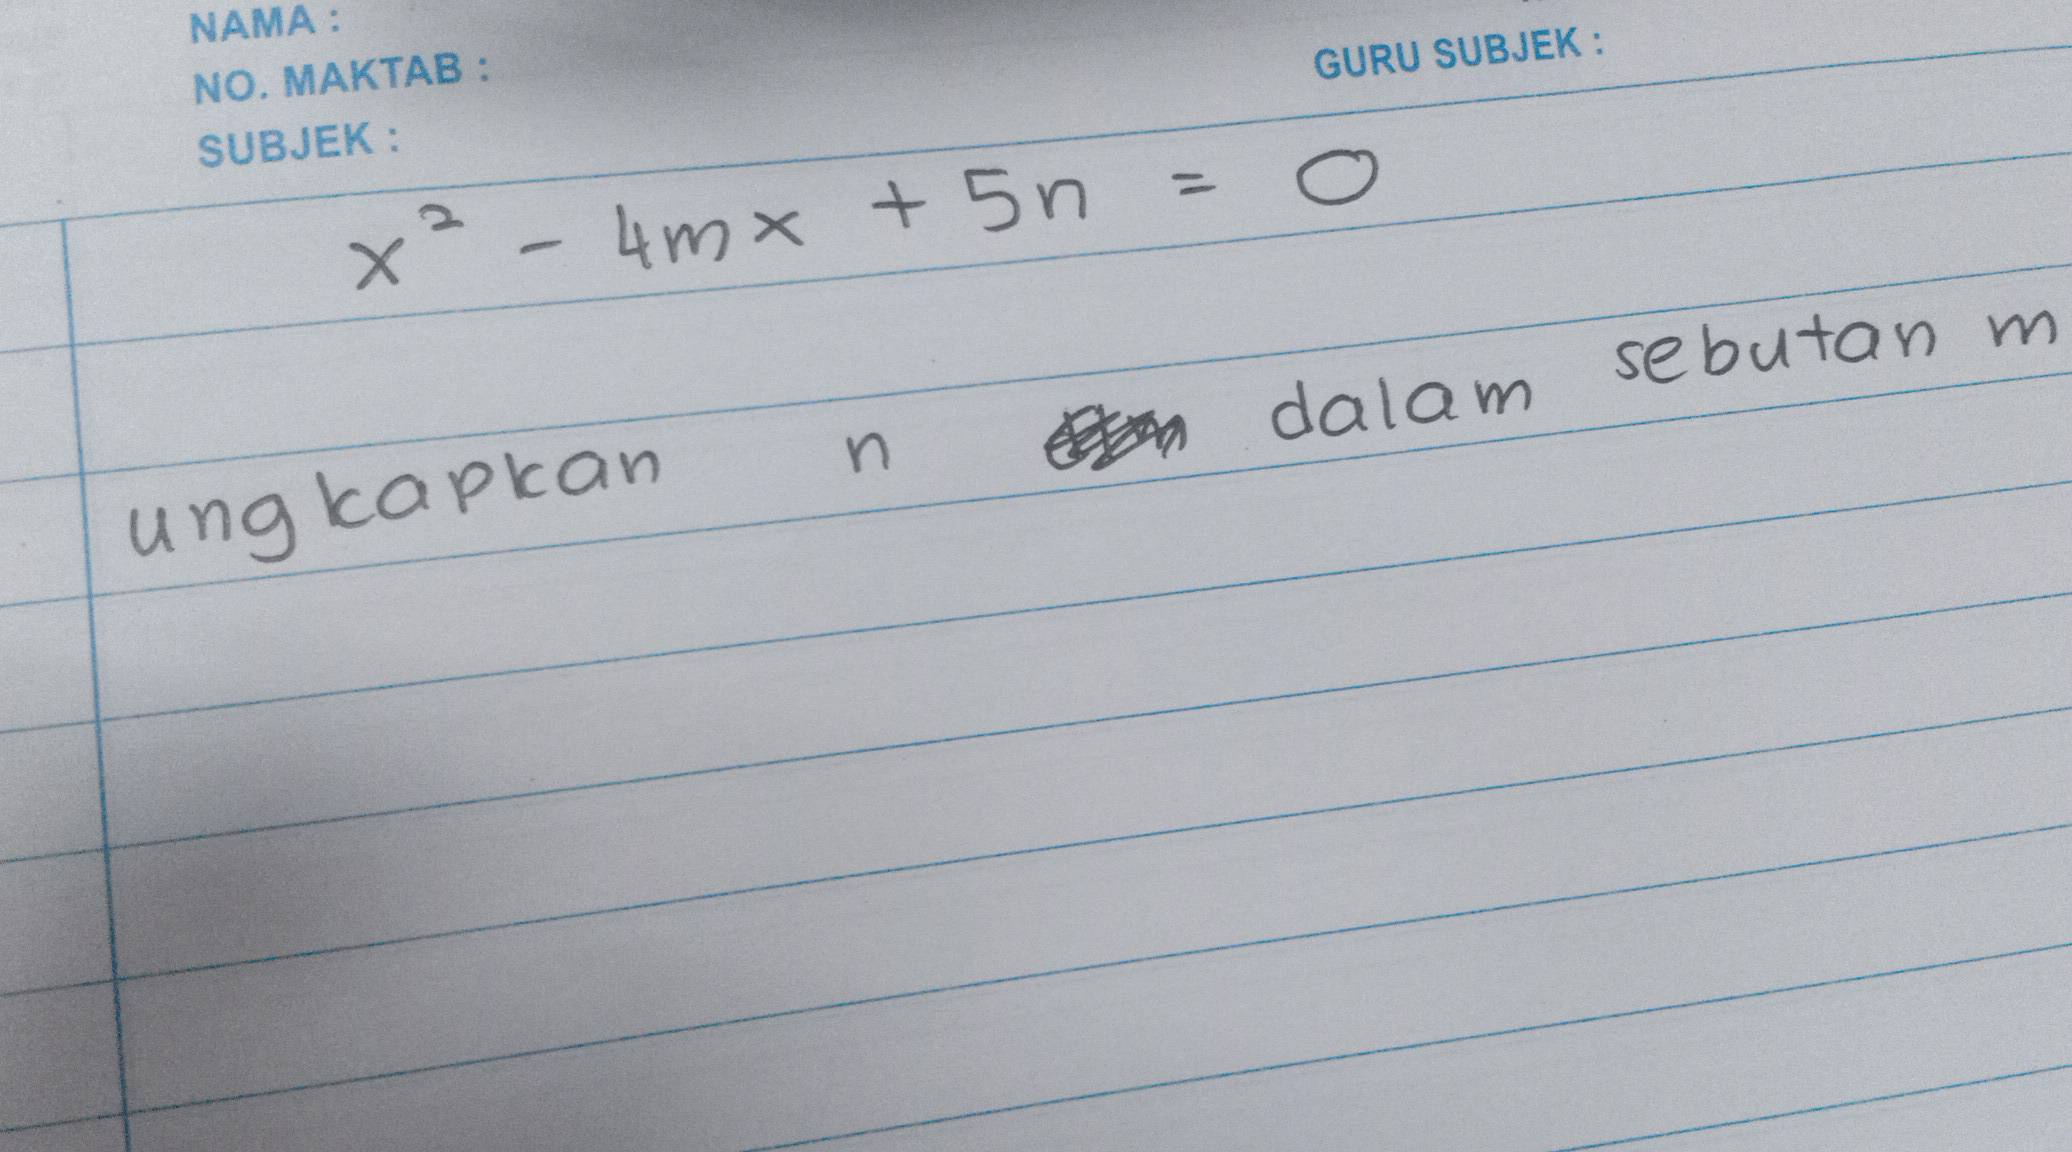 NAMA :
NO. MAKTAB :
GURU SUBJEK :
SUBJEK :
x² - 4mx + 5n = 0
ungkapkan n dalam sebutan m